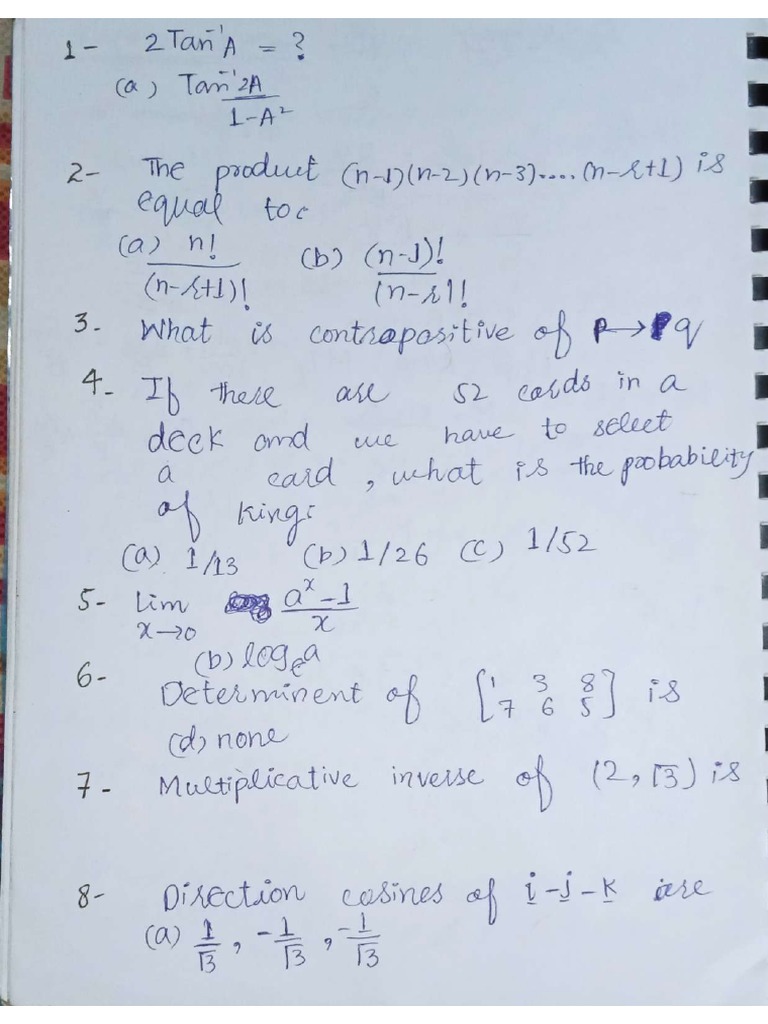 1- 2Tan⁻¹A = ?
(a) Tan⁻¹ 2A
1-A²
2- The product (n-1)(n-2)(n-3)....(n-r+1) is
equal to:
(a) n! (b) (n-1)!
(n-r+1)! (n-r)!
3- What is contrapositive of P→q
4- If there are 52 cards in a
deck and we have to select
a card, what is the probability
of king:
(a) 1/13 (b) 1/26 (c) 1/52
5- Lim aˣ-1
x→0 x
(b) logₑa
6- Determinent of [1 3 8
7 6 5] is
(d) none
7- Multiplicative inverse of (2, √3) is
8- Direction cosines of i-j-k are
(a) 1/√3, -1/√3, -1/√3